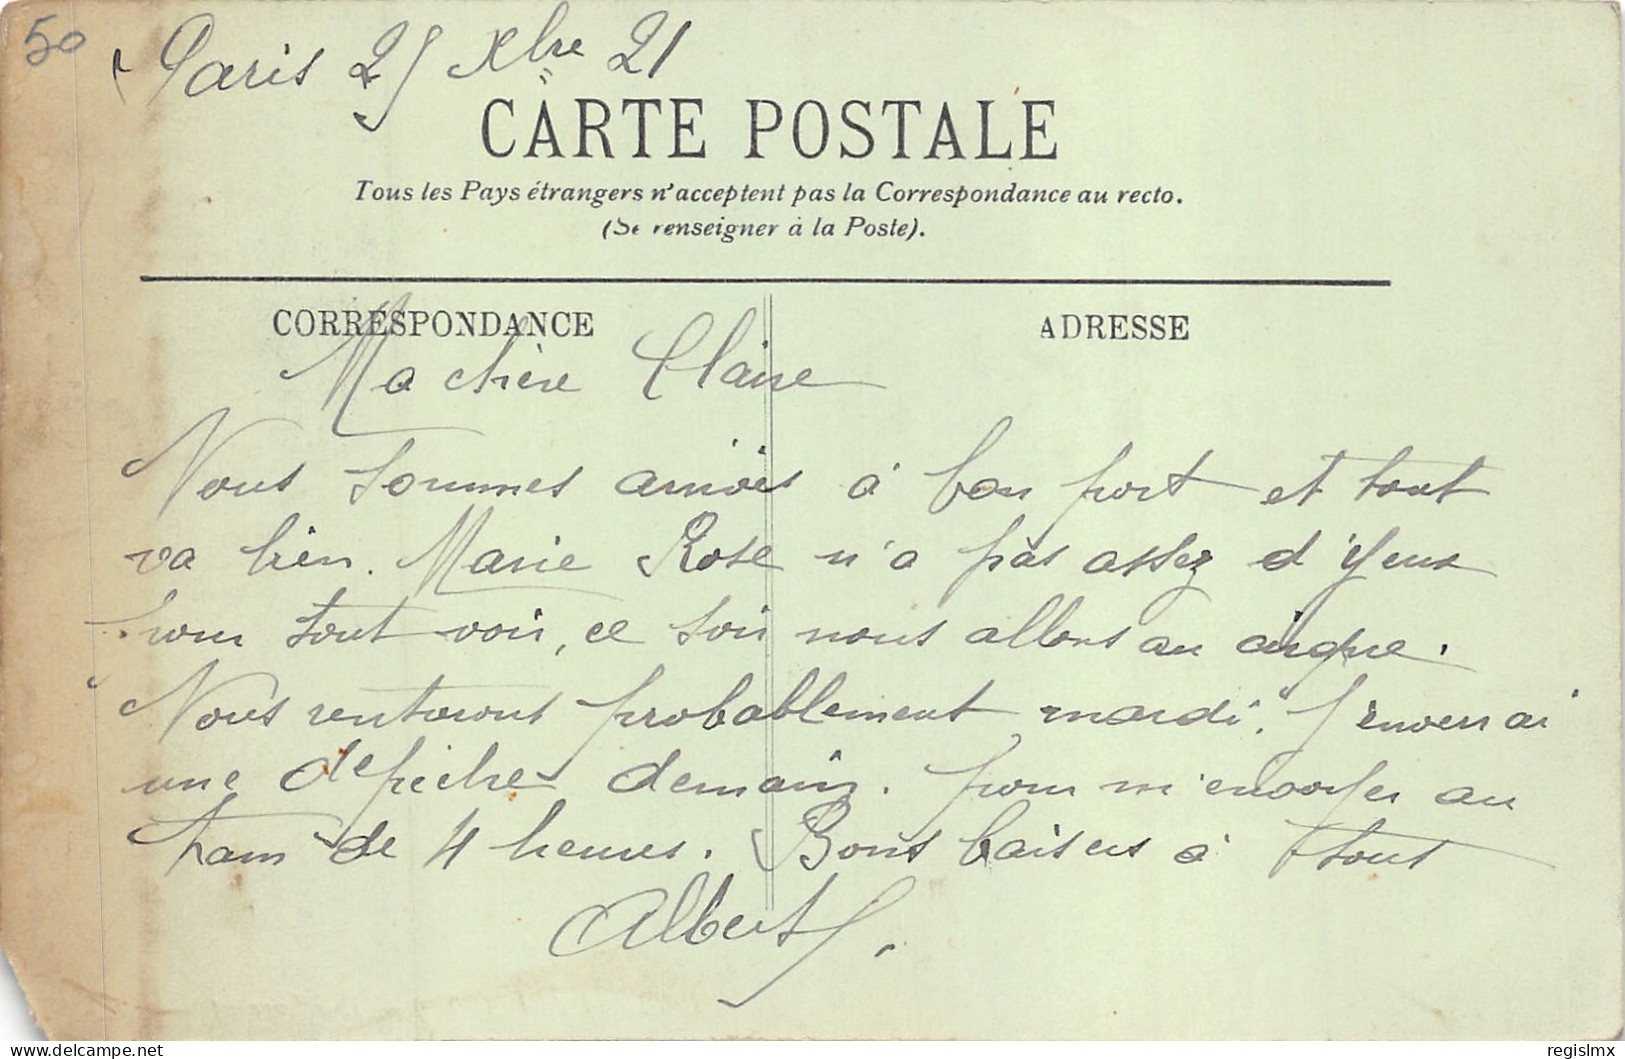 50
Paris 25 Xbre 21
CARTE POSTALE
Tous les Pays étrangers n'acceptent pas la Correspondance au recto.
(Se renseigner à la Poste).
CORRESPONDANCE
ADRESSE
Ma chère Claire
Nous sommes arrivés à bon port et tout
va bien. Marie Rose n'a pas assez d'yeux
pour tout voir, ce soir nous allons au cirque.
Nous rentrerons probablement mardi. J'enverrai
une depêche demain. pour m'envoyer au
tram de 4 heures. Bons baisers à tous
Albert.
delcampe.net
regislmx